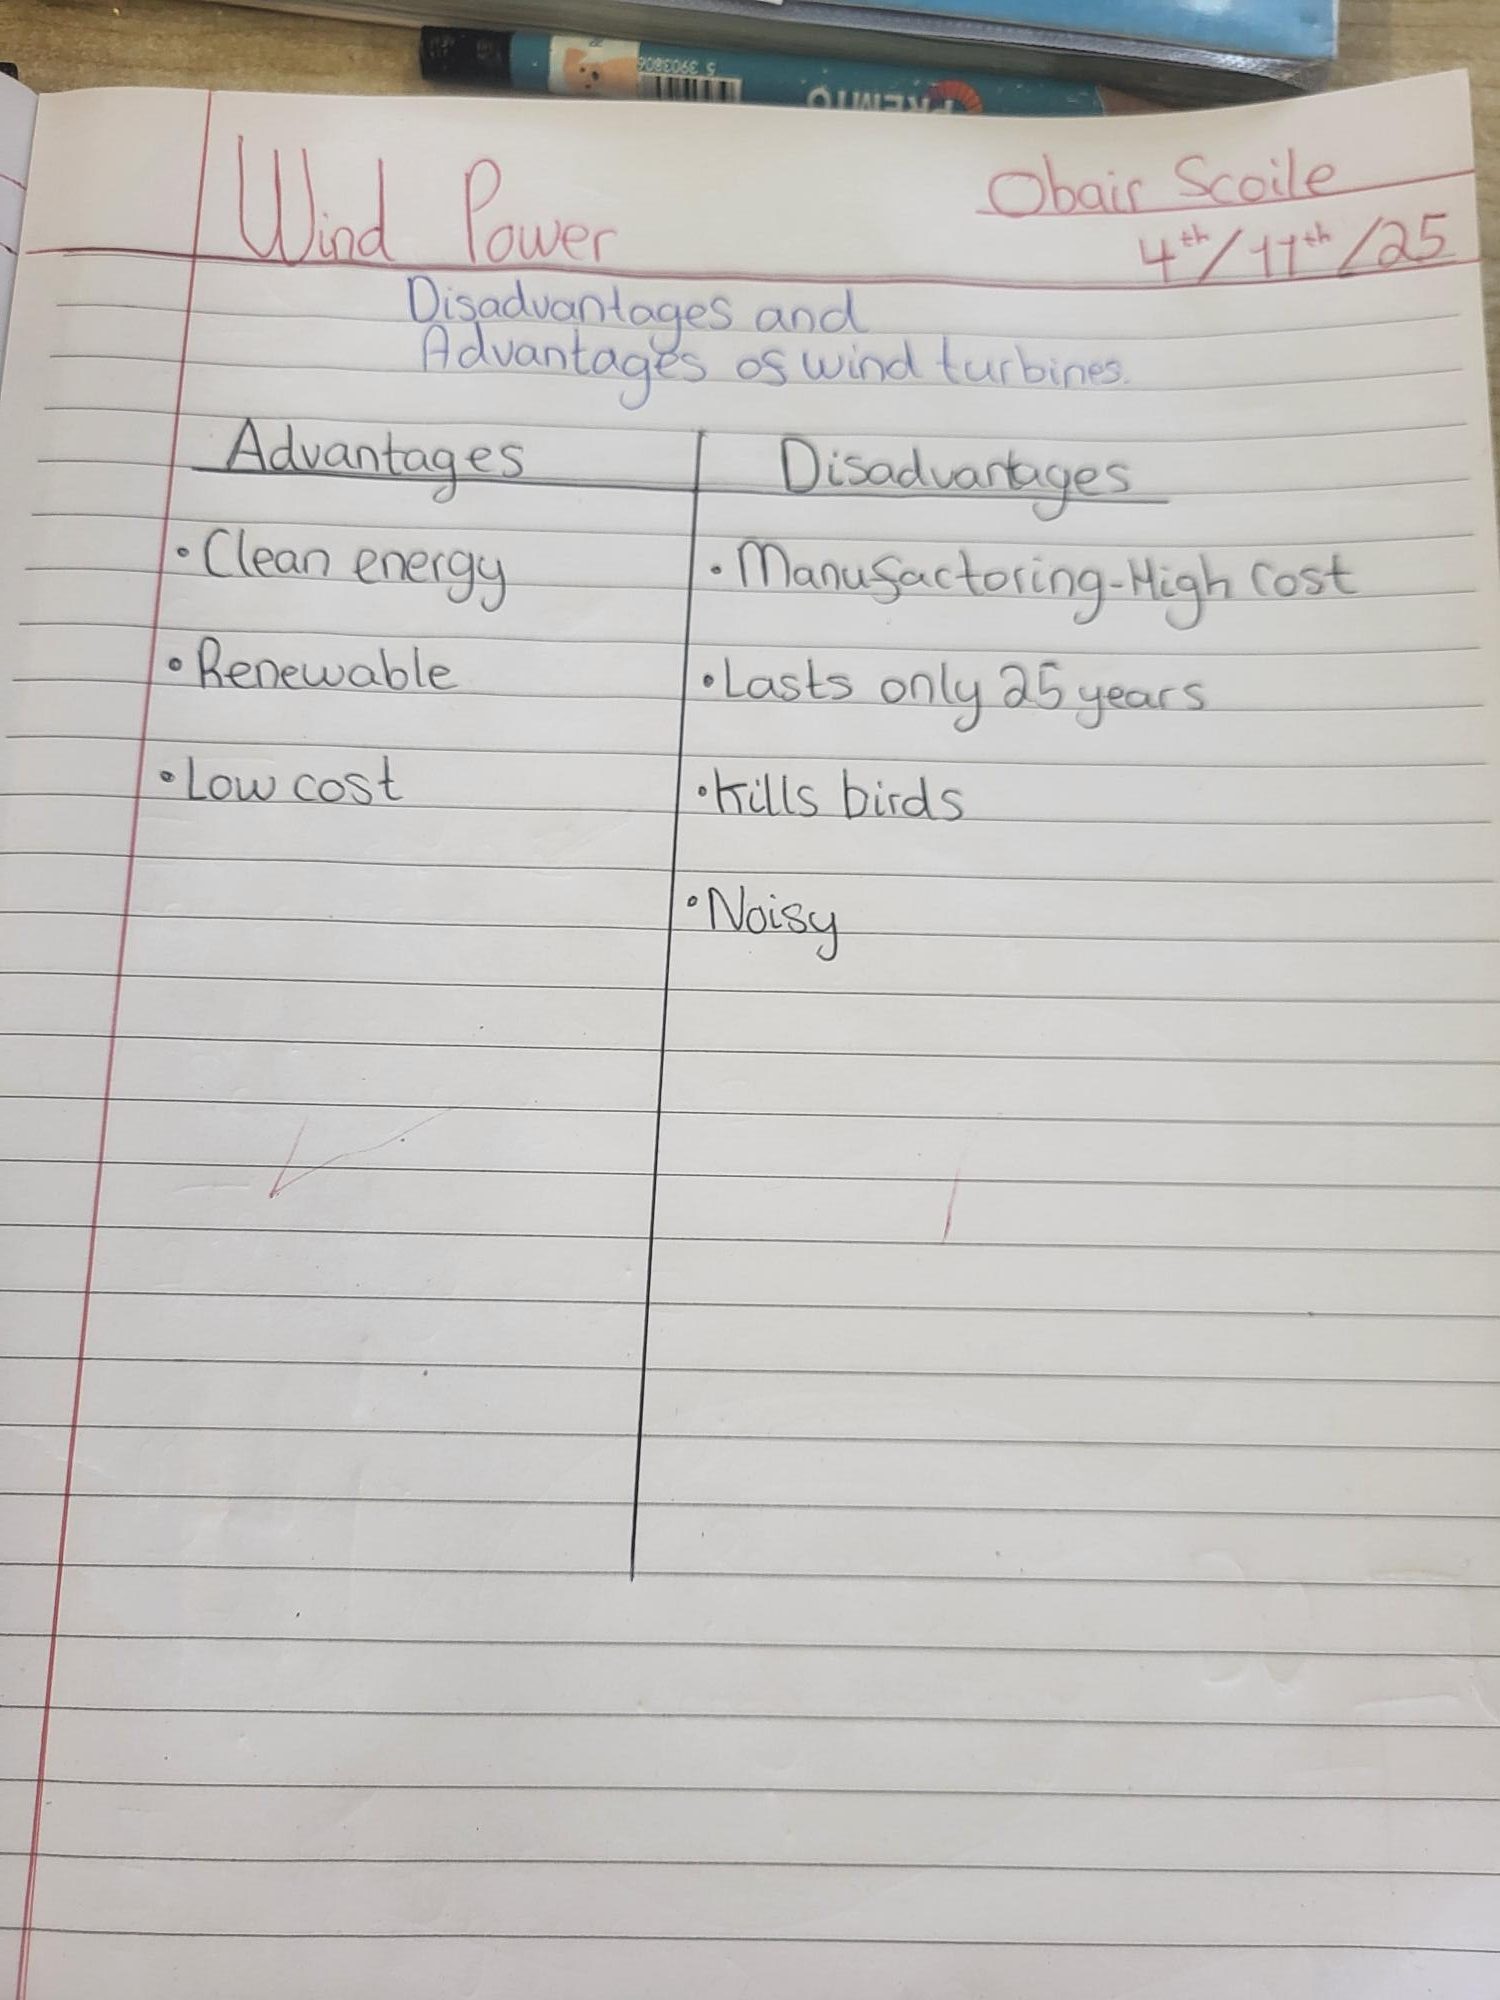 5 390380
PREMTO
Wind Power
Obair Scoile
4th/11th/25
Disadvantages and
Advantages of wind turbines.
Advantages
Disadvantages
• Clean energy
• Manufactoring-High cost
• Renewable
• Lasts only 25 years
• Low cost
• Kills birds
• Noisy